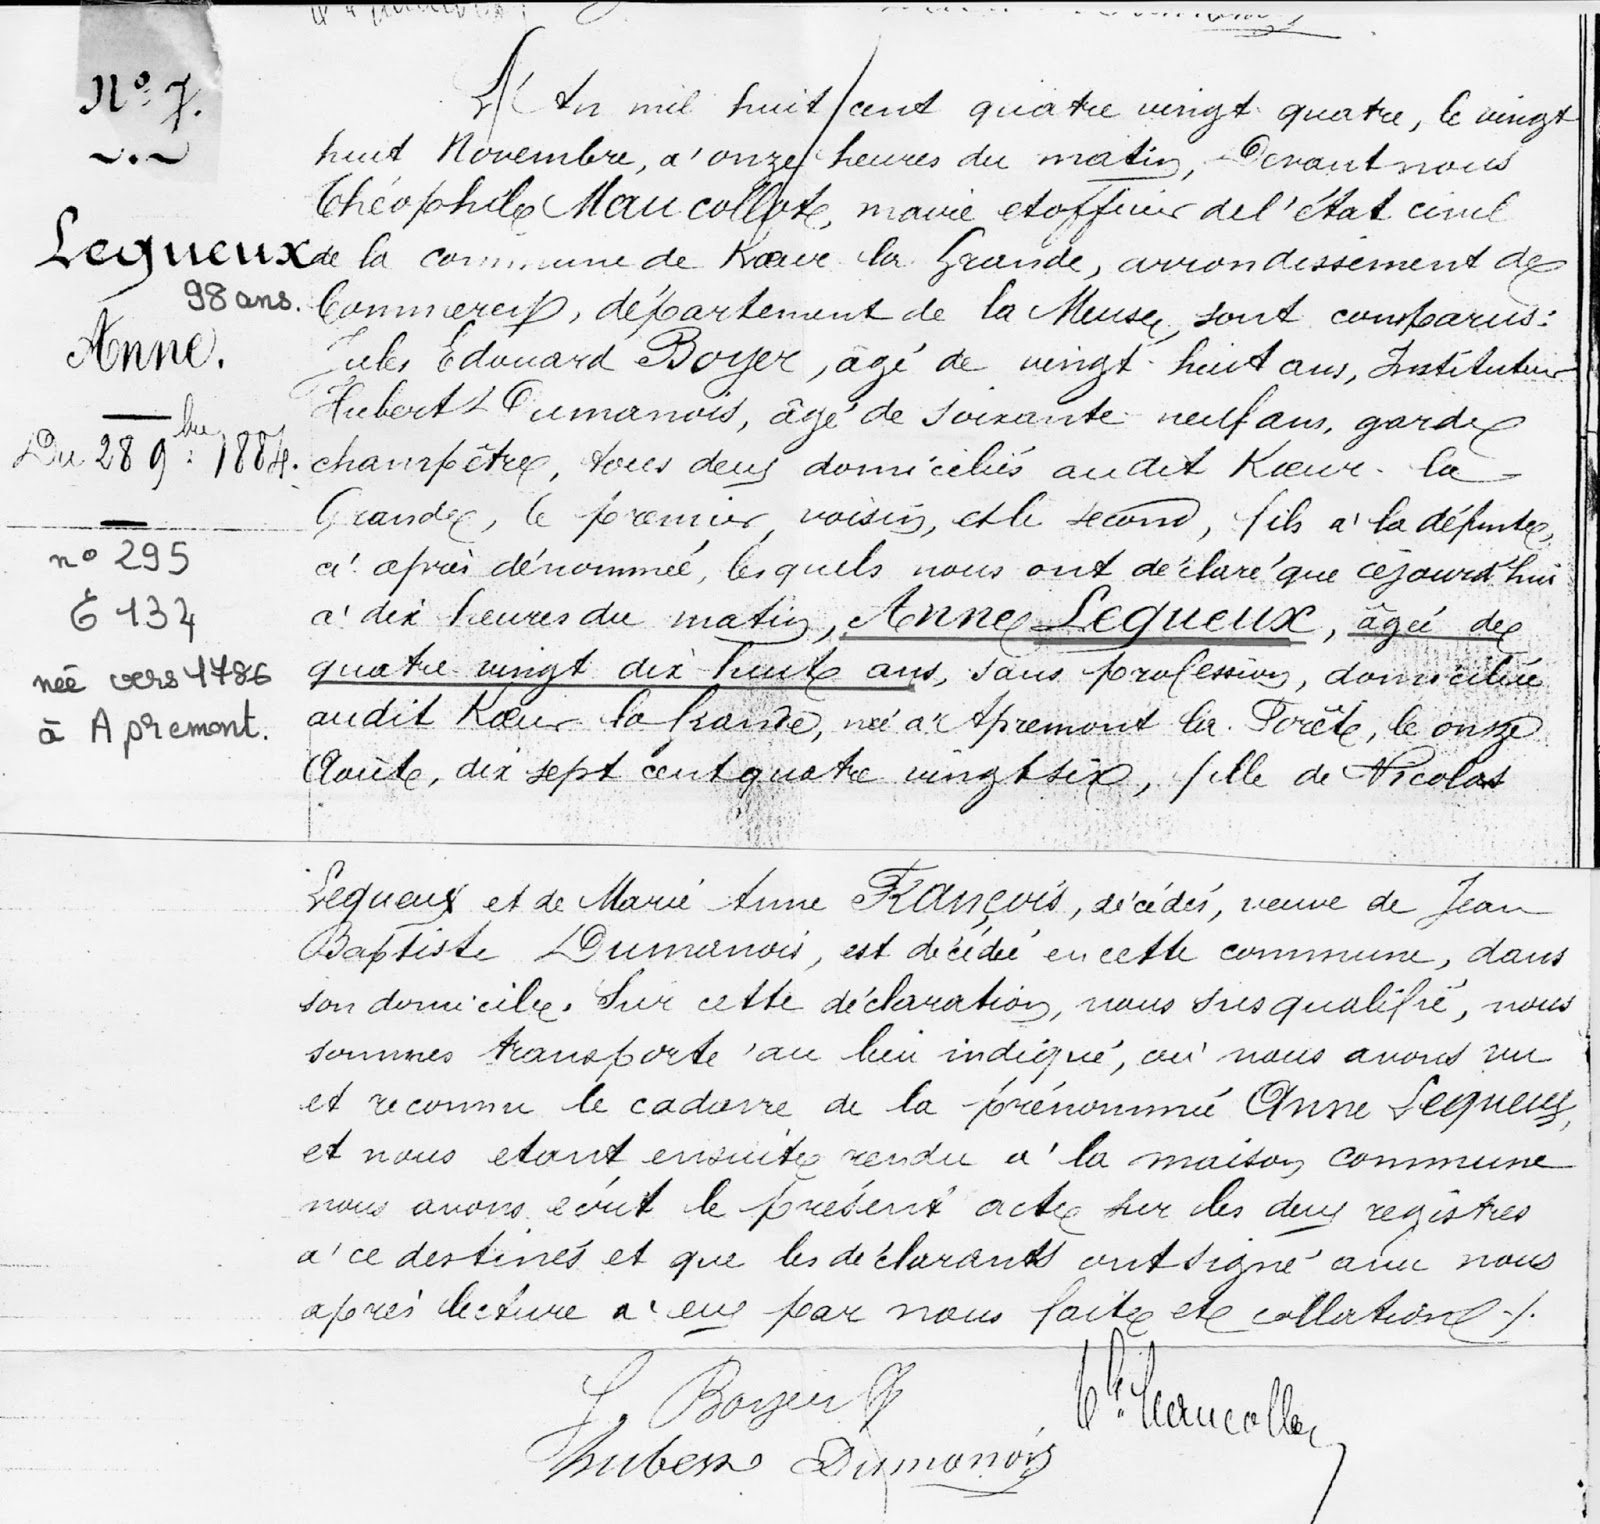 N° 7.
Lequeux
98 ans.
Anne.
Du 28 9bre 1884.
n° 295
6 134
née vers 1786
à Apremont.
L'An mil huit cent quatre vingt quatre, le vingt
huit Novembre, a' onze heures du matin, Devant nous
Théophile Maucollote, maire et officier de l'état civil
de la commune de Kœur la Grande, arrondissement de
Commercy, département de la Meuse, sont comparus:
Jules Edouard Boyer, âgé de vingt-huit ans, Instituteur
Hubert Dumanois, âgé de soixante-neuf ans, garde
champêtre, tous deux domiciliés audit Kœur-la
Grande, le premier, voisin, et le second, fils a' la défunte,
ci-après dénommée, lesquels nous ont déclaré que cejourd'hui
a' dix heures du matin, Anne Lequeux, âgée de
quatre vingt dix huit ans, sans profession, domiciliée
audit Kœur la Grande, née a' Apremont la Forête, le onze
Août, dix sept cent quatre vingt six, fille de Nicolas
Lequeux et de Marie Anne François, décédés, veuve de Jean
Baptiste Dumanois, est décédée en cette commune, dans
son domicile. Sur cette déclaration, nous susqualifié, nous
sommes transporté au lieu indiqué, où nous avons vu
et reconnu le cadavre de la prénommée Anne Lequeux,
et nous etant ensuite rendu a' la maison commune
nous avons écrit le présent acte sur les deux registres
a' ce destinés et que les déclarants ont signé avec nous
après lecture a' eux par nous faite et collation ./.
J. Boyer
Th. Maucollot
Hubert Dumanois